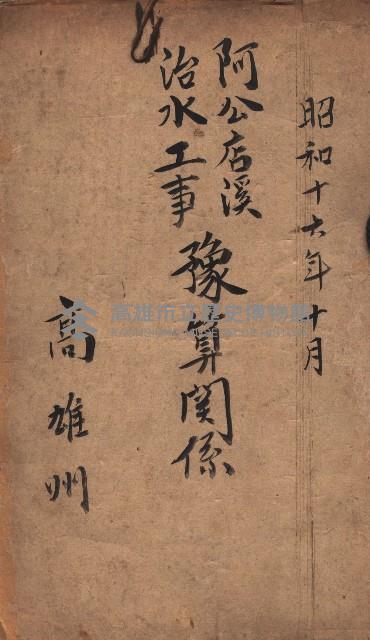 昭和十六年十月
阿公店溪
治水工事
豫算関係
高雄州
高雄市立歷史博物館
KAOHSIUNG MUSEUM OF HISTORY